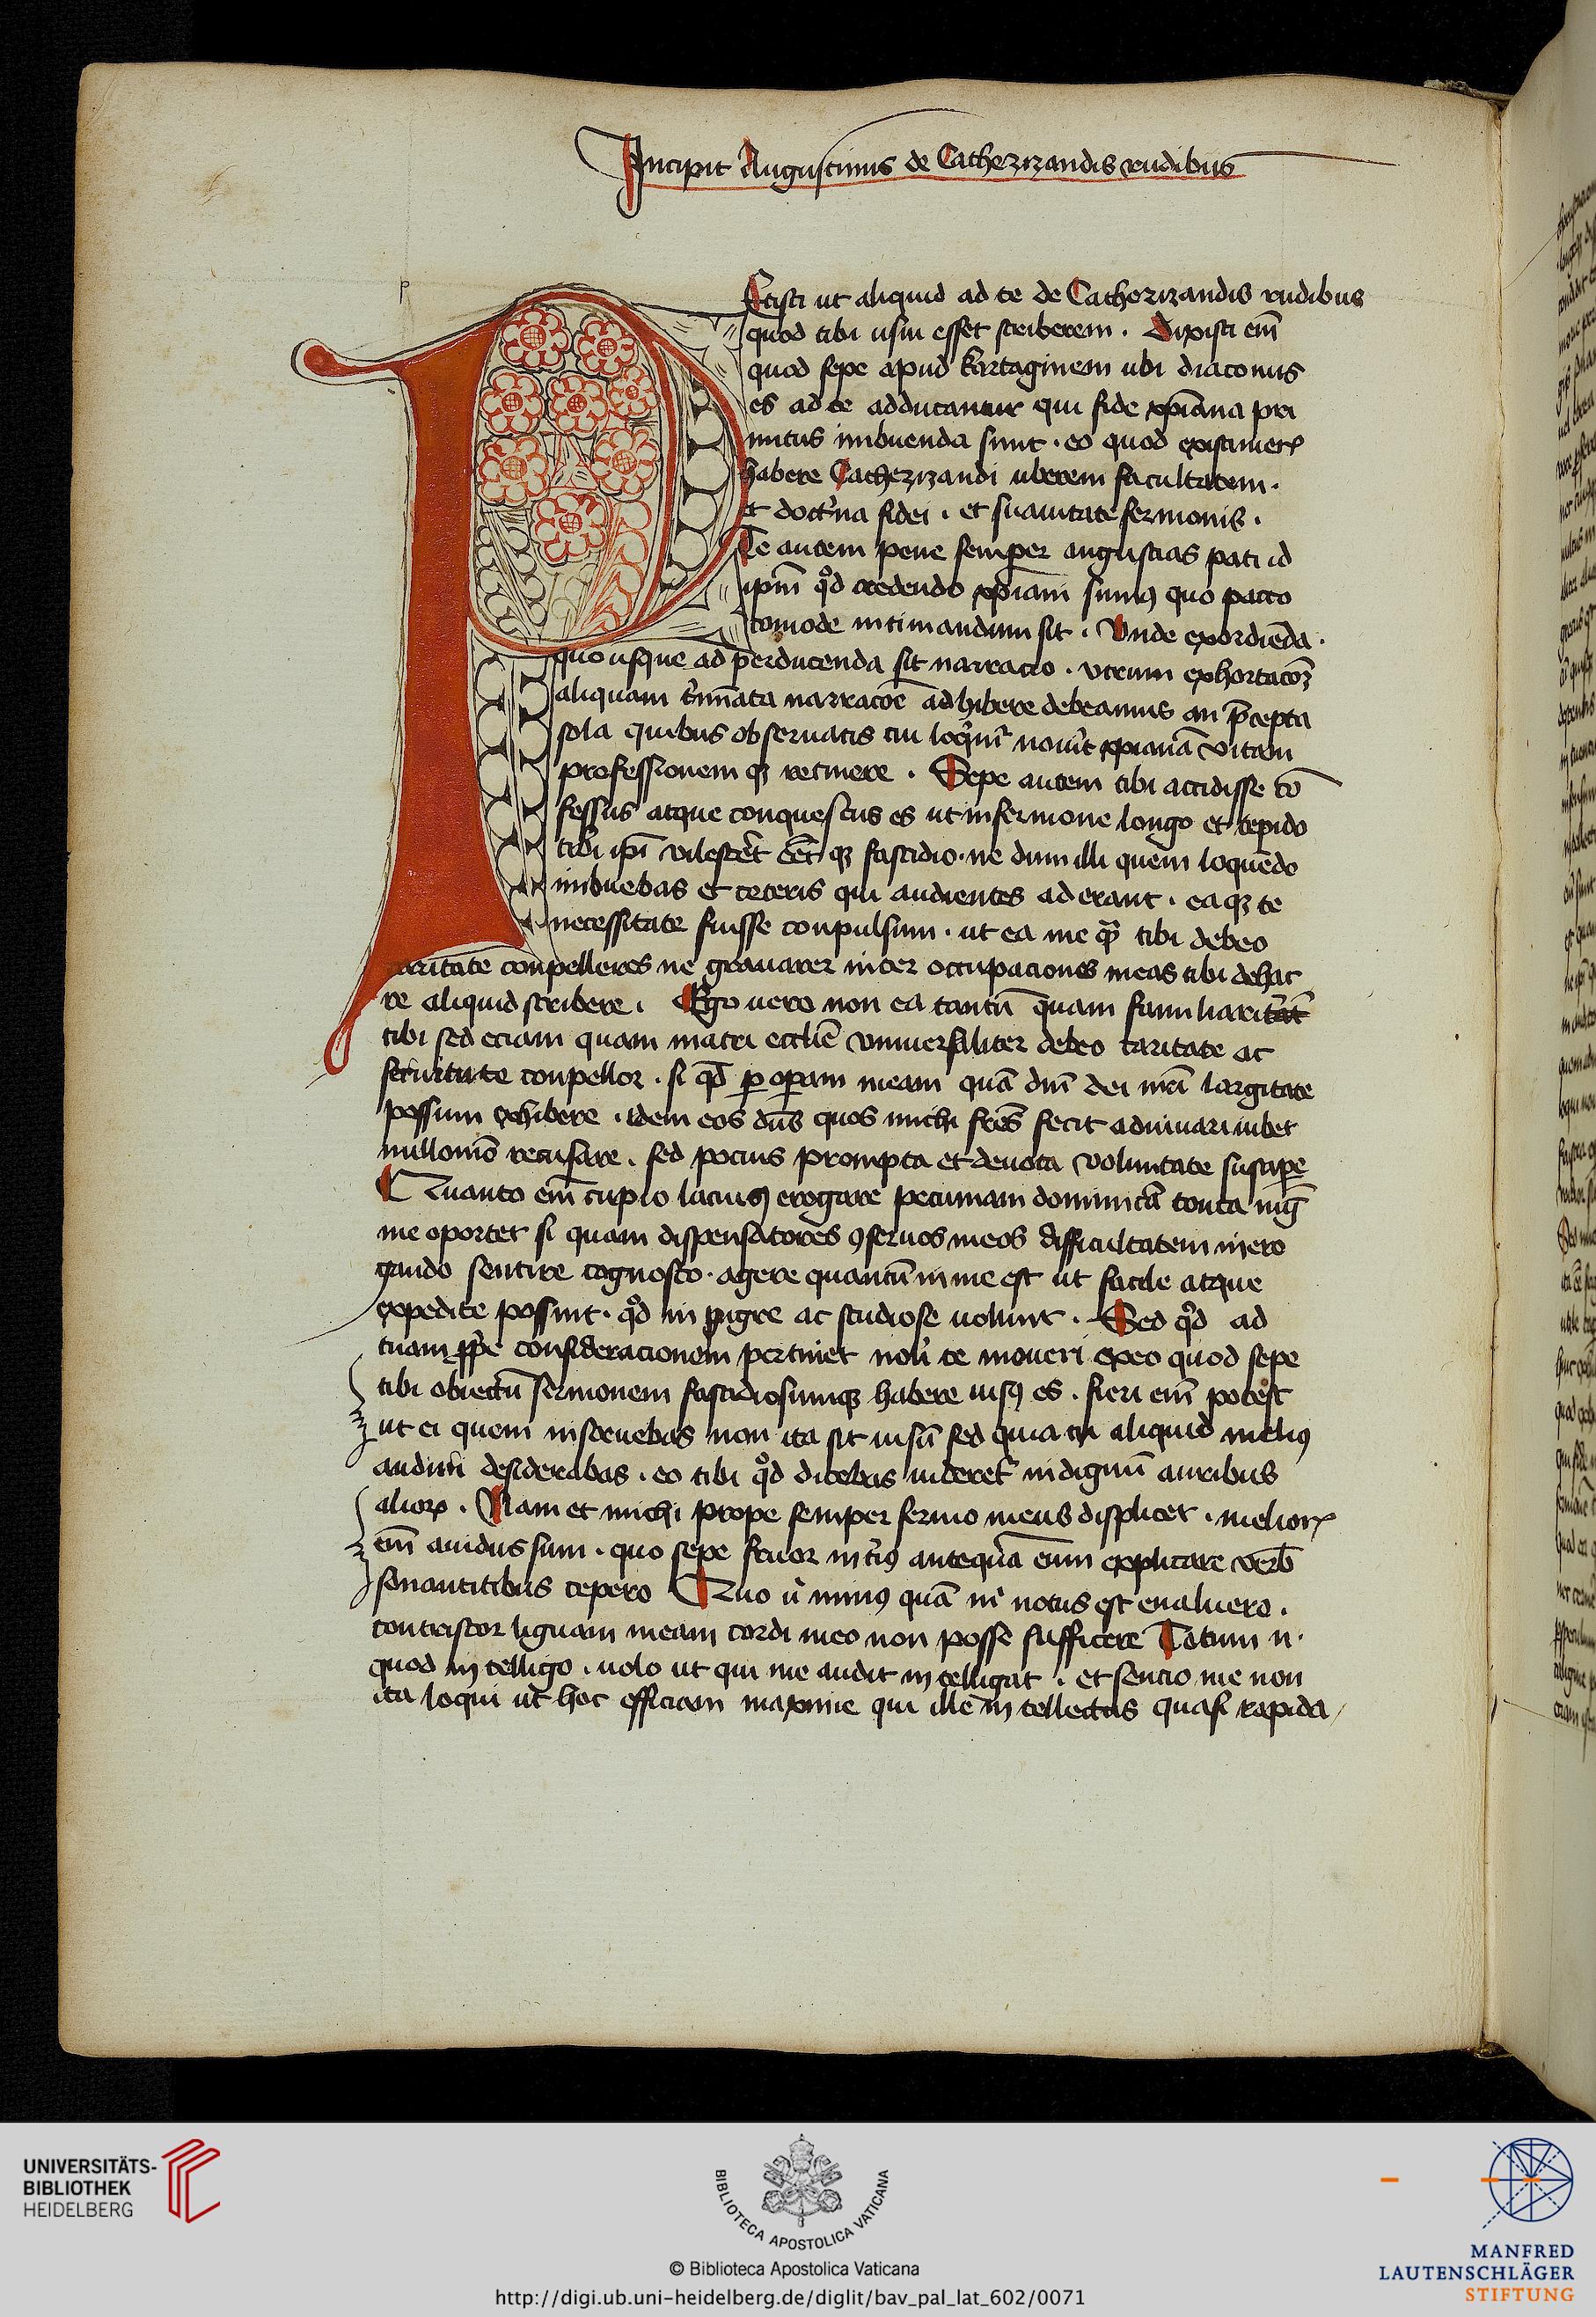 Incipit Augustinus de Cathezizandis rudibus
p
PEtisti ut aliquid ad te de Cathezizandis rudibus
quod tibi usui esset scriberem . Dixisti em̄
quod sepe apud kartaginem ubi diaconus
es ad te adducantur qui fide xp̄iana pri
mitus imbuendi sunt . eo quod existimerꝭ
habere Cathezizandi uberem facultatem .
et doct'na fidei . et suauitate sermonis .
Te autem pene semper angustias pati id
ip̄m qͦd credendo xp̄iani sumꝰ quo pacto
comode intimandum sit . Vnde exordiēda .
quo usque ad perducenda sit narracio . vtrum exhortacoꝫ
aliquam t'mīata narracōe adhibere debeamus an p̄cepta
sola quibus obseruatis cui loq'm̄ nouīt xp̄ianā vitam
professionem qꝫ retinere . Sepe autem tibi accidisse cō
fessus atque conquestus es ut in sermone longo et tepido
tibi ip̄i vilesc'et eēt qꝫ fastidio . ne dum illi quem loquēdo
imbuebas et ceteris qui audientes ad erant . ea qꝫ te
necessitate fuisse conpulsum . ut ea me qͣ tibi debeo
caritate conpelleres ne grauarer inter occupaciones meas tibi dehac
re aliquid scribere . Ego uero non ea tantū quam familiaritāt
tibi sed eciam quam matri eccl̄ie vniuersaliter debeo caritate ac
seruitute conpellor . si qͥd ꝑ oꝑam meam quā dn̄i dei mei largitate
possum exhibere . idem eos dn̄s quos michi fr̄es fecit adiuuari iubet
nullomō recusare . sed pocius prompta et deuota voluntate suscipe
Quanto em̄ cupio laciꝰ erogare pecuniam dominicā tanta mḡ
me oportet si quam dispensatores ꝯseruos meos difficultatem in ero
gando sentire cognosco . agere quantū in me est ut facile atque
expedite possint . qͦd in pigre ac studiose uolunt . Sed qͦd ad
tuam ꝓpͥe consideracionem pertinet noli te moueri ex eo quod sepe
tibi obiectū sermonem fastidiosumqꝫ habere uisꝰ es . fieri em̄ potest
ut ei quem instruebas non ita sit uisū sed quia tu aliquid meliꝰ
audiri desiderabas . eo tibi qͦd dicebas uideret' indignum auribus
aliorꝭ . Nam et michi prope semper sermo meus displicet . meliorꝭ
em̄ auidus sum . quo sepe fruor int'iꝰ antequā eum explicare verb̄
sonantitibus cepero Quo ū minꝰ quā m̄ notus est eualuero .
contristor liguam meam cordi meo non posse sufficere Totum n .
quod intelligo . uolo ut qui me audit intelligat . et sencio me non
ita loqui ut hoc efficiam maxime qui ille intellectus quasi rapida
UNIVERSITÄTS-
BIBLIOTHEK
HEIDELBERG
BIBLIOTECA APOSTOLICA VATICANA
© Biblioteca Apostolica Vaticana
http://digi.ub.uni-heidelberg.de/diglit/bav_pal_lat_602/0071
MANFRED
LAUTENSCHLÄGER
STIFTUNG